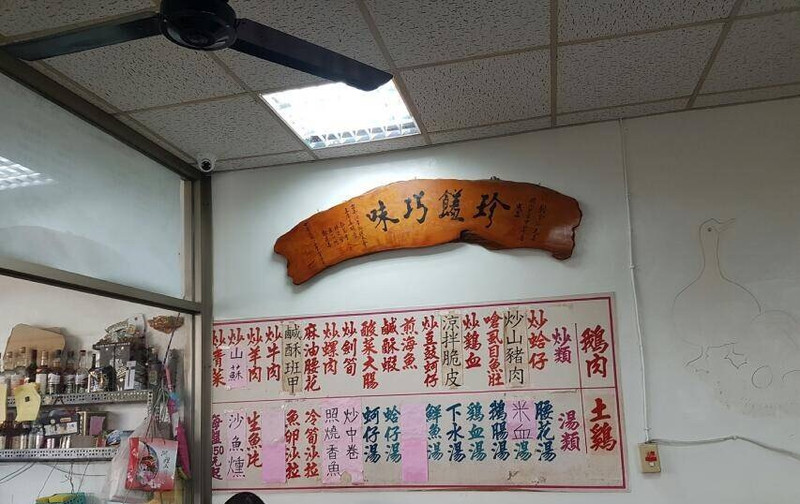 珍饈巧味
鵝肉
土鷄
炒類
炒蛤仔
炒山豬肉
嗆虱目魚肚
炒鷄血
涼拌脆皮
炒豆鼓蚵仔
煎海魚
鹹酥蝦
酸菜大腸
炒劍筍
炒螺肉
麻油腰花
鹹酥班甲
炒牛肉
炒羊肉
炒山蘇
炒青菜
湯類
腰花湯
米血湯
鵝腸湯
鷄血湯
下水湯
鮮魚湯
蛤仔湯
蚵仔湯
炒中卷
照燒香魚
冷筍沙拉
魚卵沙拉
生魚片
沙魚燻
每盤150元起